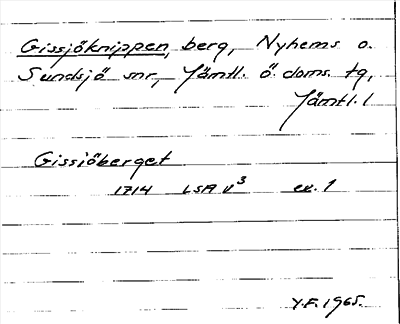 Gissjöknippen, berg, Nyhems o.
Sundsjö snr, Jämtl. ö. doms. tg,
Jämtl. l
Gissiöberget
1714 LSA v³ ex. 1
Y.F. 1965.